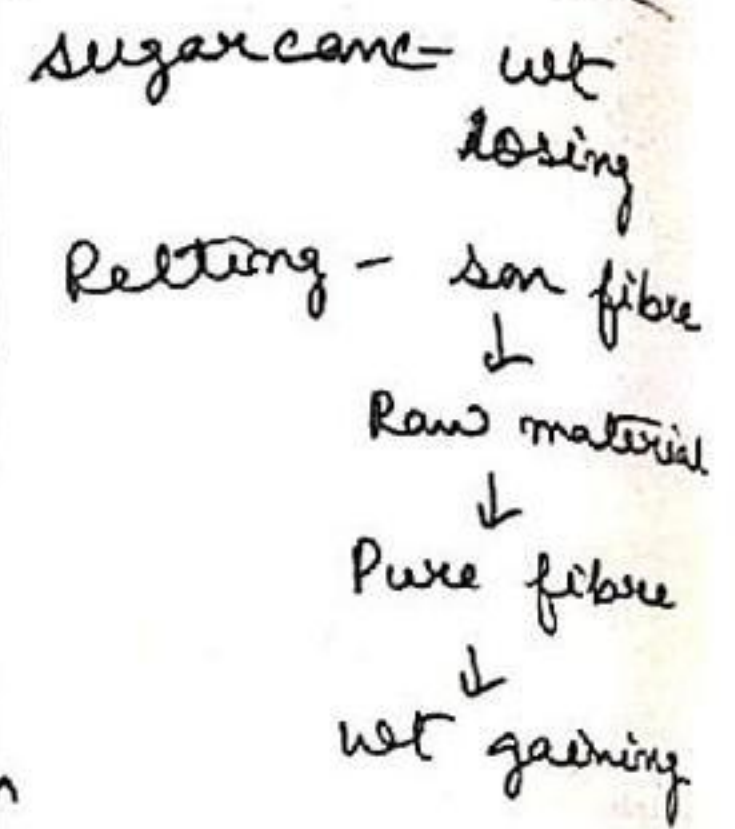 Sugarcane - wt
losing
Retting - son fibre
↓
Raw material
↓
Pure fibre
↓
wt gaining